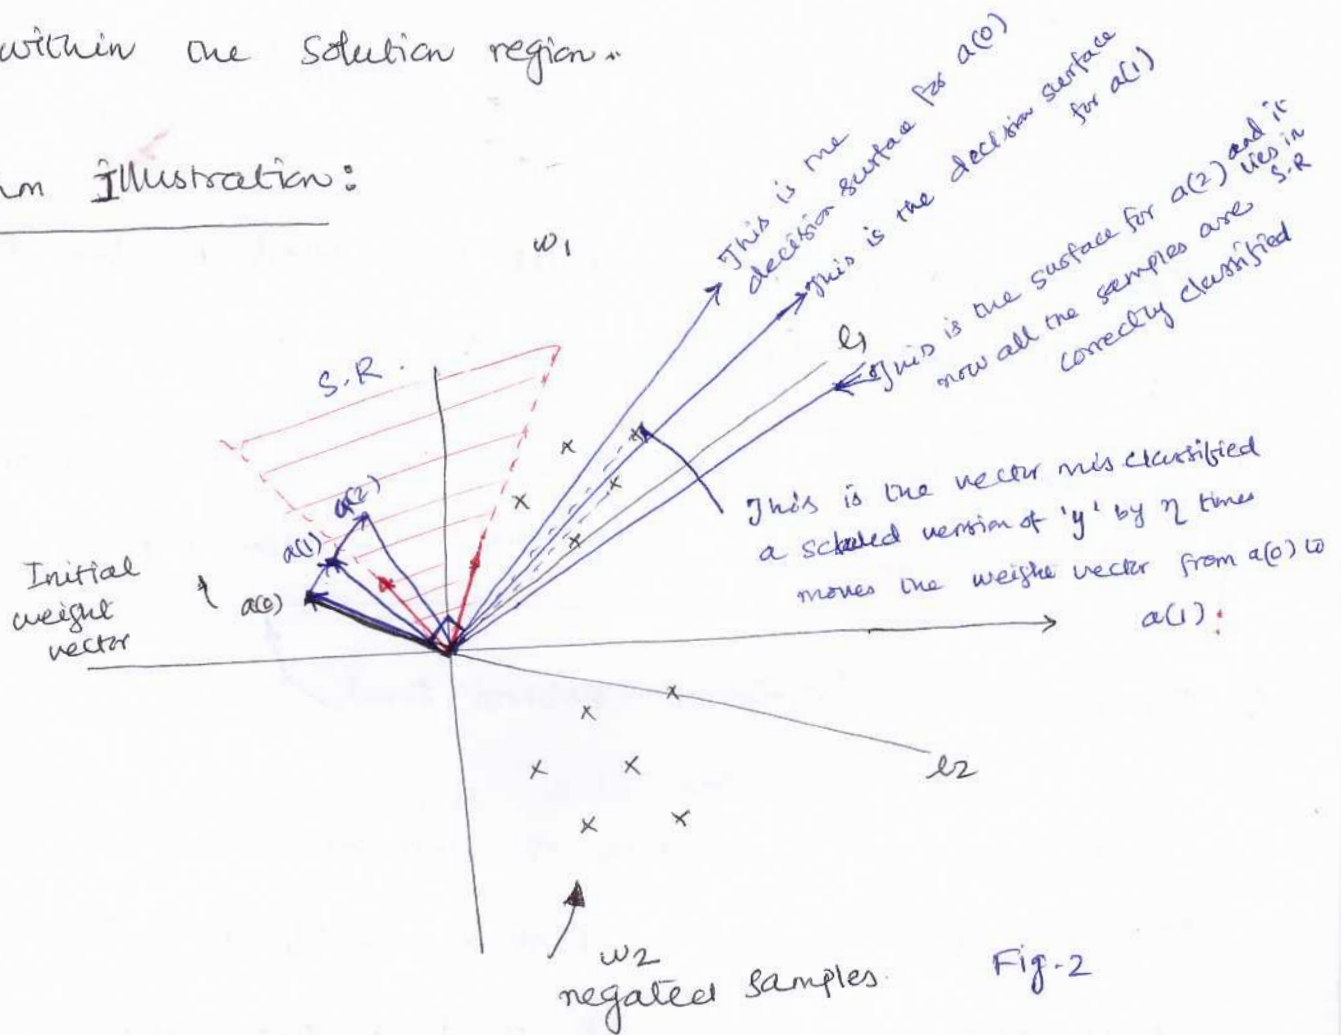 within the solution region.
Illustration:
w1
This is the
decision surface for a(0)
This is the decision surface
for a(1)
This is the surface for a(2) and it
lies in
S.R
now all the samples are
correctly classified
l1
S.R.
a(2)
a(1)
a(0)
Initial
weight
vector
This is the vector misclassified
a scaled version of 'y' by η times
moves the weight vector from a(0) to
a(1).
l2
w2
negated samples.
Fig-2